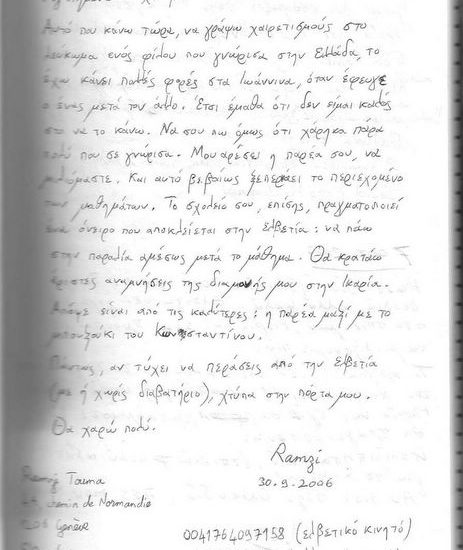 Αυτό που κάνω τώρα, να γράφω χαιρετισμούς στο
λεύκωμα ενός φίλου που γνώρισα στην Ελλάδα, το
έχω κάνει πολλές φορές στα Ιωάννινα, όταν έφευγε
ο ένας μετά τον άλλο. Έτσι έμαθα ότι δεν είμαι καλός
στο να το κάνω. Να σου πω όμως ότι χάρηκα πάρα
πολύ που σε γνώρισα. Μου αρέσει η παρέα σου, να
μαζευόμαστε. Και αυτό βεβαίως ξεπεράσει το περιεχόμενο
των μαθημάτων. Το σχολείο σου, επίσης, πραγματοποιεί
ένα όνειρο που αποκλείεται στην Ελβετία: να πάω
στην παραλία αμέσως μετά το μάθημα. Θα κρατάω
άριστες αναμνήσεις της διαμονής μου στην Ικαρία.
είναι από τις καλύτερες: η παρέα μαζί με το
μπουζούκι του Κωνσταντίνου.
Πάντως, αν τύχει να περάσεις από την Ελβετία
(με ή χωρίς διαβατήριο), χτύπα στην πόρτα μου.
Θα χαρώ πολύ.
Ramzi
30.9.2006
Ramzi Touma
chemin de Normandie
1206 Genève
0041764097158 (ελβετικό κινητό)